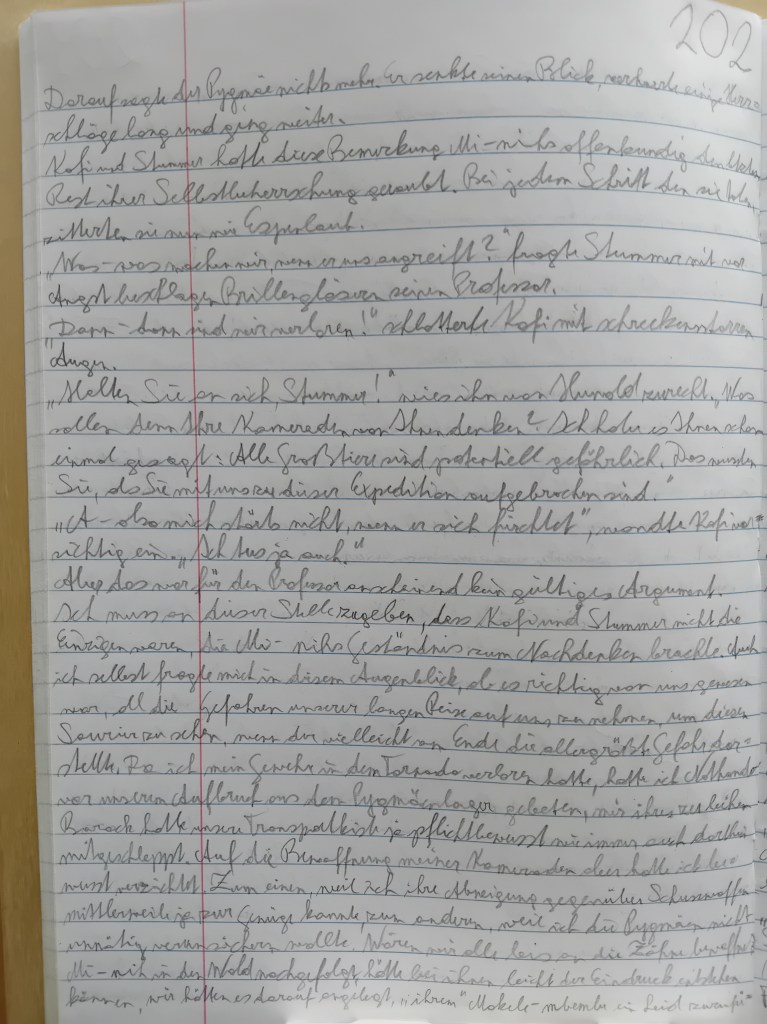 202
Darauf sagte der Pygmäe nichts mehr. Er senkte seinen Blick, verharrte einige Herz=
schläge lang und ging weiter.
Kofi und Stummer hatte diese Bemerkung Mi-nihs offenkundig den letzten
Rest ihrer Selbstbeherrschung geraubt. Bei jedem Schritt den sie taten
zitterten sie nun wie Espenlaub.
„Was-was machen wir, wenn er uns angreift?" fragte Stummer mit vor
Angst beschlagen Brillengläsern seinen Professor.
„Dann-dann sind wir verloren!" schlotterte Kofi mit schreckensstarren
Augen.
„Halten Sie an sich, Stummer!" wies ihn von Hunold zurecht. „Was
sollen denn Ihre Kameraden von Ihnen denken? Ich habe es Ihnen schon
einmal gesagt: Alle Großtiere sind potentiell gefährlich. Das wussten
Sie, als Sie mit uns zu dieser Expedition aufgebrochen sind."
„A-also mich störts nicht, wenn er sich fürchtet", wandte Kofi vor=
sichtig ein. „Ich tus ja auch."
Aber das war für den Professor anscheinend kein gültiges Argument.
Ich muss an dieser Stelle zugeben, dass Kofi und Stummer nicht die
Einzigen waren, die Mi-nihs Geständnis zum Nachdenken brachte. Auch
ich selbst fragte mich in diesem Augenblick, ob es richtig von uns gewesen
war, all die Gefahren unserer langen Reise auf uns zu nehmen, um diesen
Saurier zu sehen, wenn der vielleicht am Ende die allergrößte Gefahr dar=
stellte. Da ich mein Gewehr in dem Tornado verloren hatte, hatte ich
vor unserem Aufbruch aus dem Pygmäenlager gebeten, mir ihres zu leihen
Barack hatte unsere Transportkiste ja pflichtbewusst wie immer auch dorthin
mitgeschleppt. Auf die Bewaffnung meiner Kameraden aber hatte ich be=
wusst verzichtet. Zum einen, weil ich ihre Abneigung gegenüber Schusswaffen
mittlerweile ja zur Genüge kannte, zum anderen, weil ich die Pygmäen nicht
unnötig verunsichern wollte. Wären wir alle bis an die Zähne bewaffnet
Mi-nih in den Wald nachgefolgt, hätte bei ihnen leicht der Eindruck entstehen
können, wir hätten es darauf angelegt, „ihrem" Mokele-mbembe ein Leid